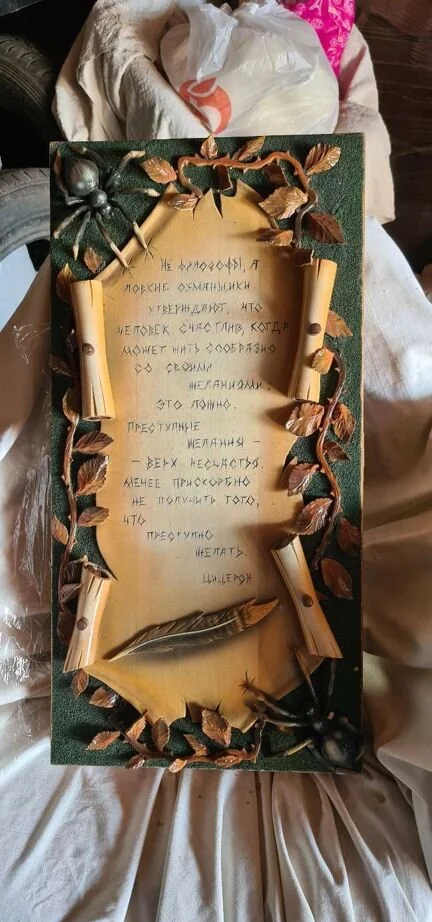 Не философы, а
ловкие обманщики
утверждают, что
человек счастлив, когда
может жить сообразно
со своими
желаниями;
это ложно.
Преступные
желания –
– верх несчастья.
Менее прискорбно
не получить того,
что
преступно
желать.
Цицерон